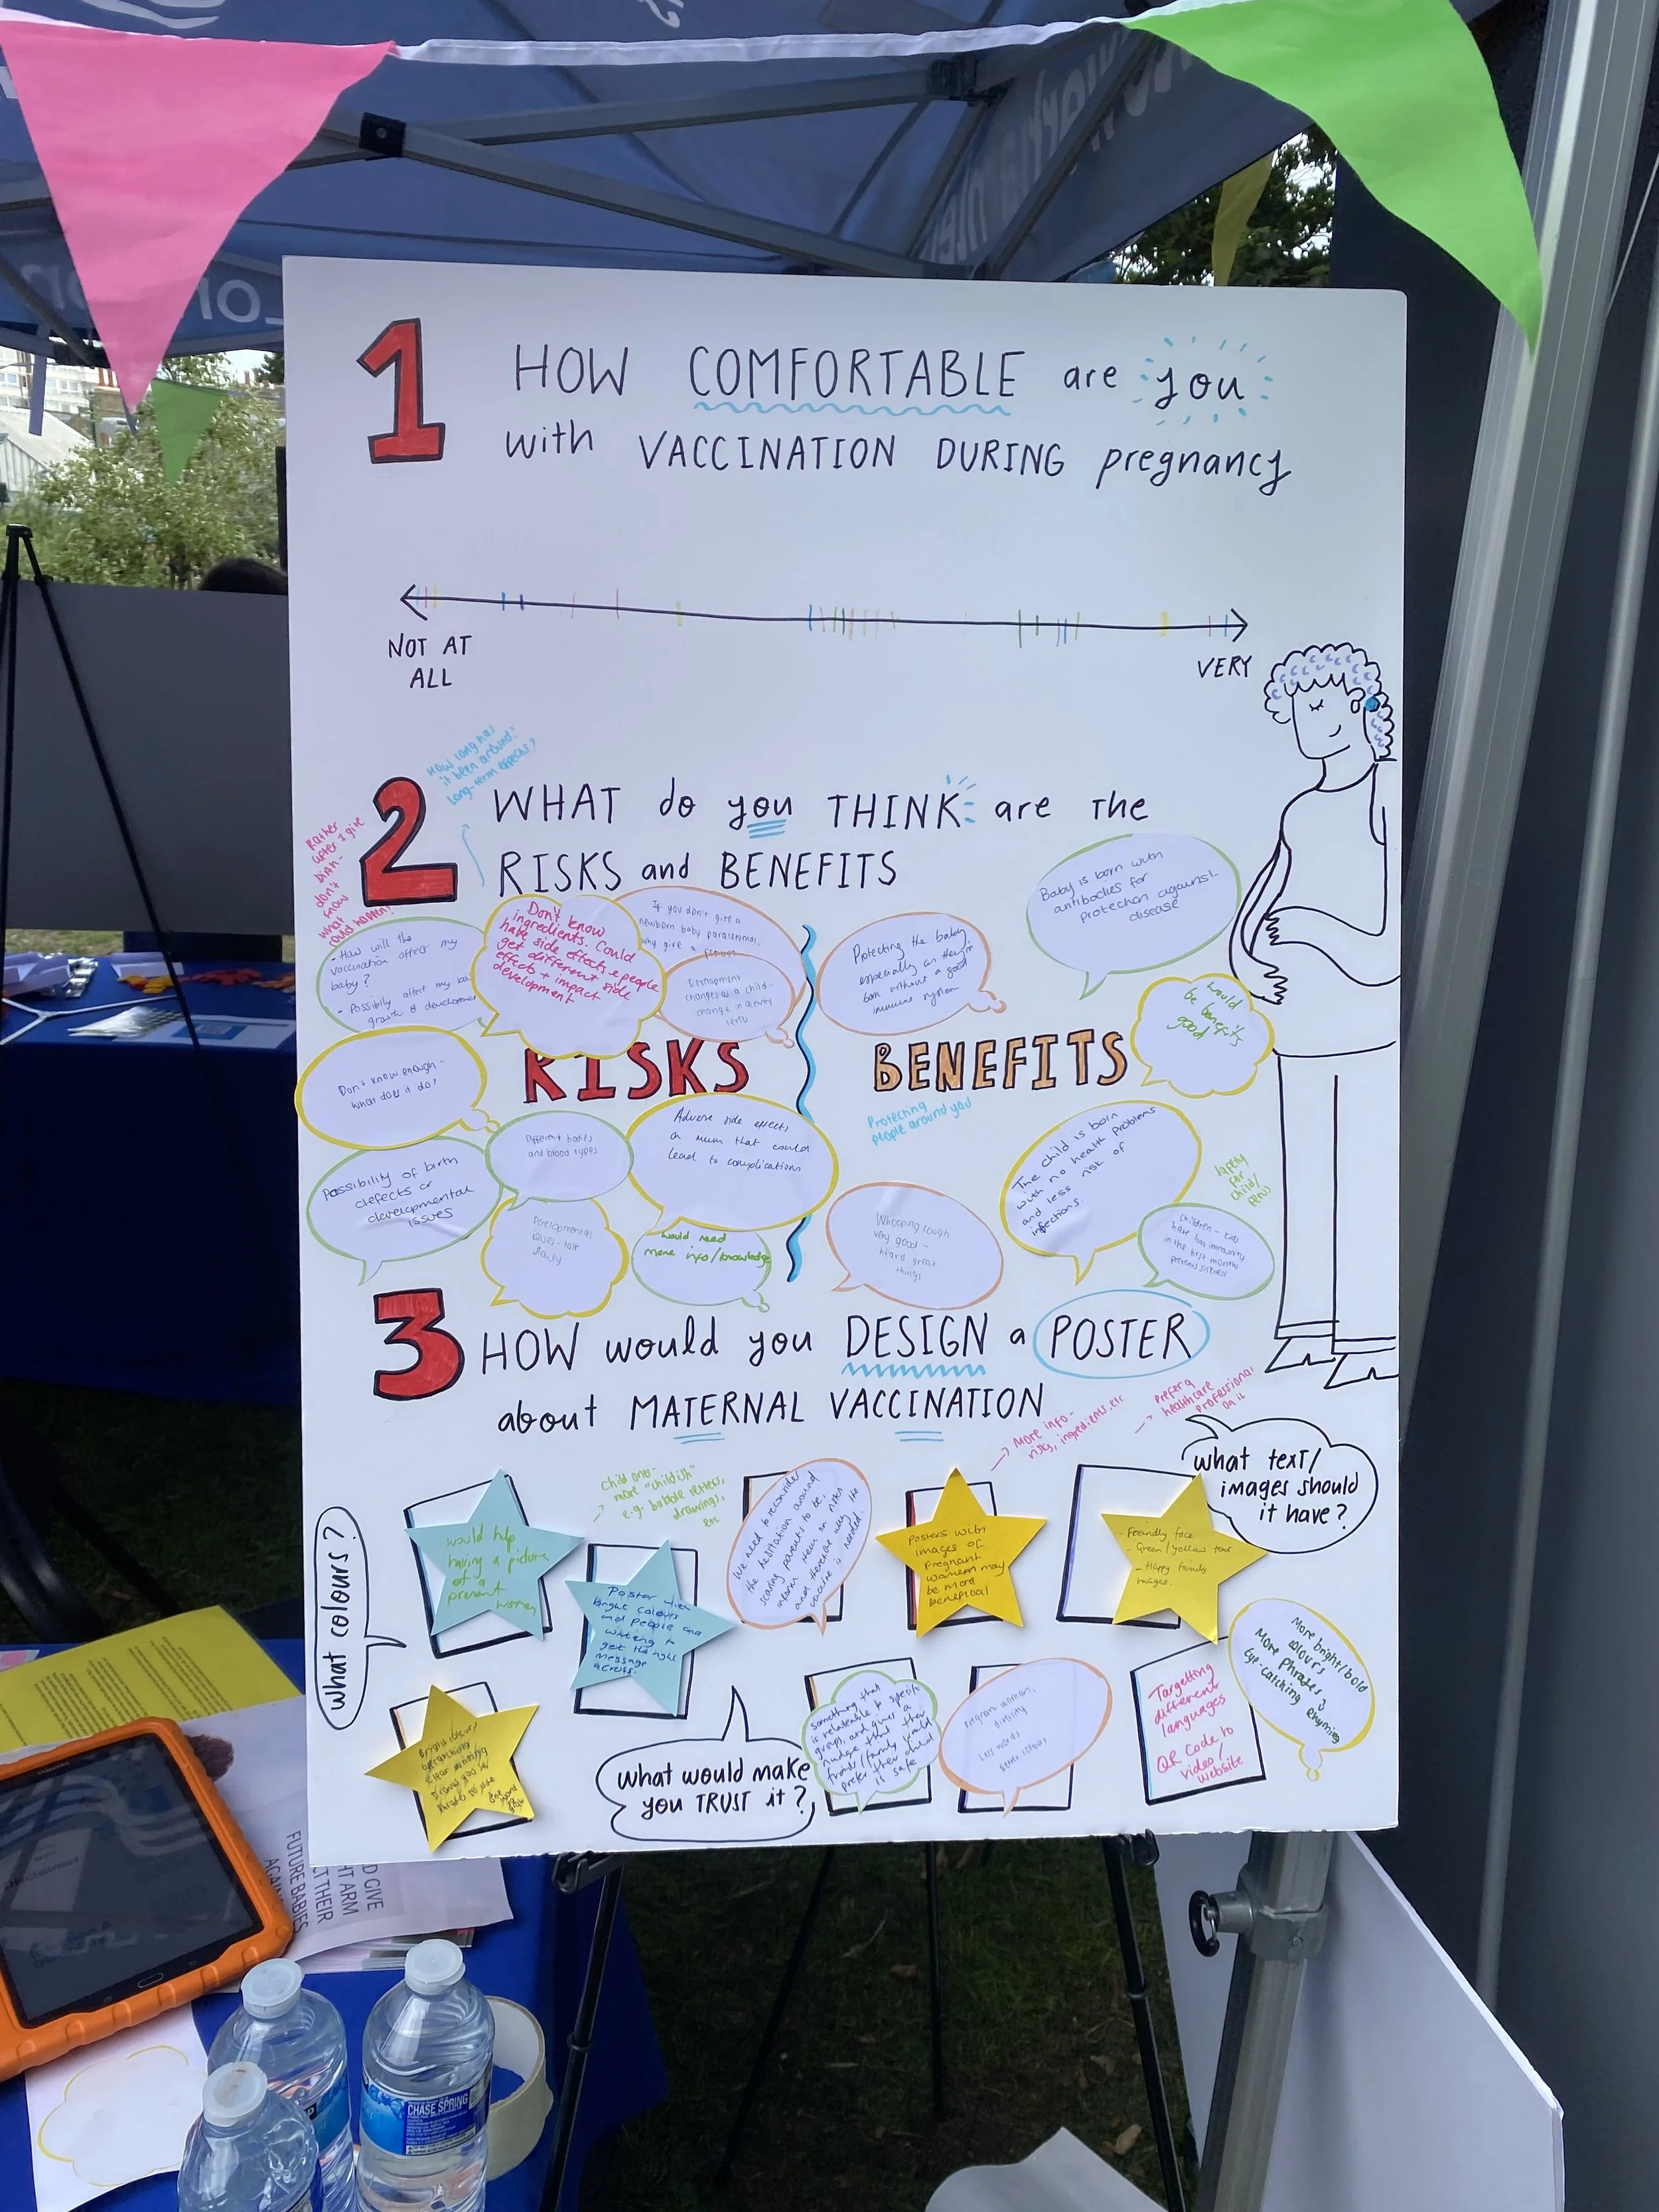 1
HOW COMFORTABLE are you
with VACCINATION DURING pregnancy
NOT AT
ALL
VERY
How long has
it been around?
Long-term effects?
2
WHAT do you THINK are the
RISKS and BENEFITS
Rather
after I give
birth -
don't
know
what
could happen?
- How will the
vaccination affect my
baby?
- Possibly affect my
growth & development
Don't know
ingredients. Could
have side effects & people
get different side
effects + impact
development
If you don't give a
newborn baby paracetamol,
why give a
changes as a child -
change in activity
levels
Protecting the baby
especially as they're
born without a good
immune system
Baby is born with
antibodies for
protection against
disease
would
be benefits
good
RISKS
BENEFITS
Don't know enough -
what does it do?
Different bodies
and blood types
Adverse side effects
on mum that could
lead to complications
Protecting
people around you
The child is born
with no health problems
and less risk of
infections.
Possibility of birth
defects or
developmental
issues
Developmental
issues - talk
slowly
would need
more info/knowledge
Whooping cough
very good -
heard great
things
Safety
for
child/
Children -
have low immunity
in the first months -
prevents sickness
3
HOW would you DESIGN a POSTER
about MATERNAL VACCINATION
→ More info -
risks, ingredients, etc
→ prefer a
healthcare
professional
on it
what text/
images should
it have?
what colours?
would help
having a picture
of a
women
child one -
→ more "childish"
e.g. bubble letters,
drawings,
etc
Poster with
bright colours
and people and
writing to
get the right
message
across.
We need to reconsider
the hesitation around
scaring parents to be,
inform them on risks
and therefore why the
vaccine is needed.
Posters with
images of
Pregnant
women may
be more
beneficial
- Friendly face
- Green/yellow text
- Happy family
images.
More bright/bold
colours
More phrases &
Eye-catching rhyming
Targetting
different
languages
QR Code to
video/
website
something that
is relateable to specific
groups, and gives a
nudge that their
friend/family would
prefer their child
is safe
Pregnant woman,
diversity
less words
Bright colours
what would make
you TRUST it?
D GIVE
HT ARM
CT THEIR
FUTURE BABIES
AGAIN
SAMSUNG
CHASE SPRING